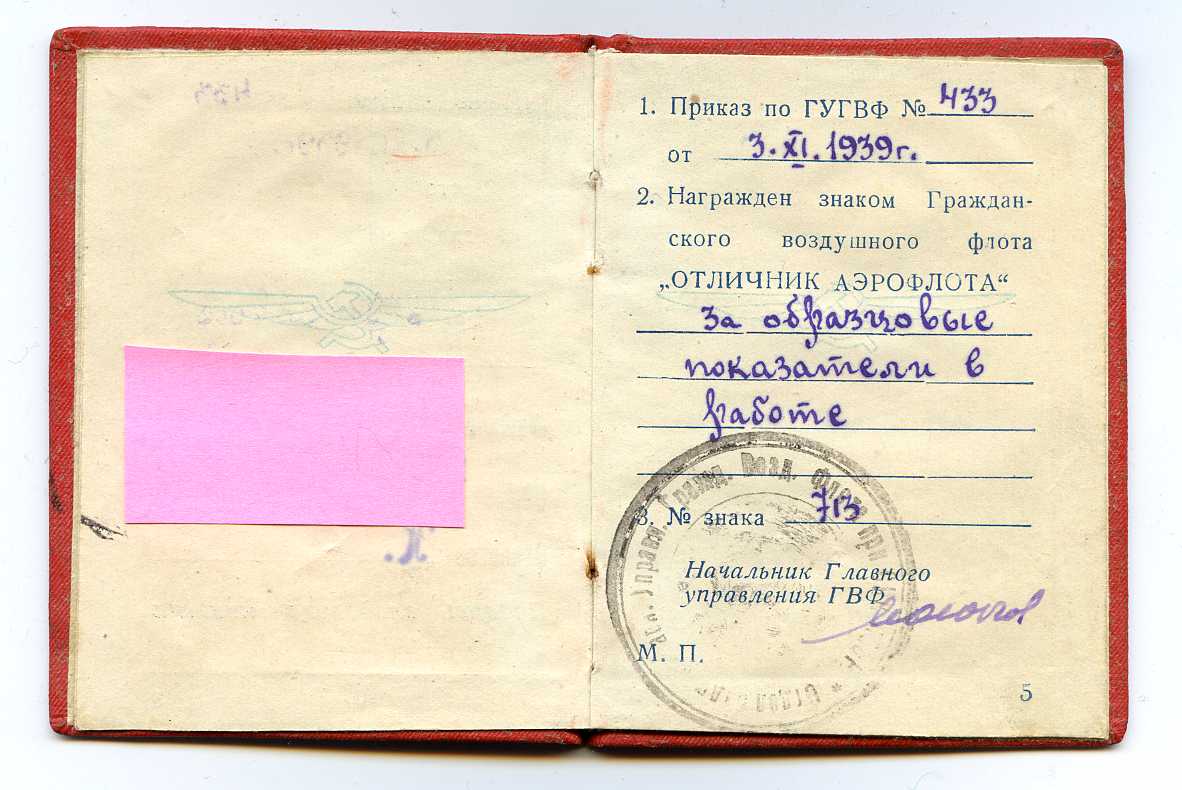 1. Приказ по ГУГВФ № 433
от 3.XI.1939г.
2. Награжден знаком Граждан-
ского воздушного флота
„ОТЛИЧНИК АЭРОФЛОТА“
за образцовые
показатели в
работе
3. № знака 713
Начальник Главного
управления ГВФ
М. П.
5
Управл. Гражд. Возд. Флота при